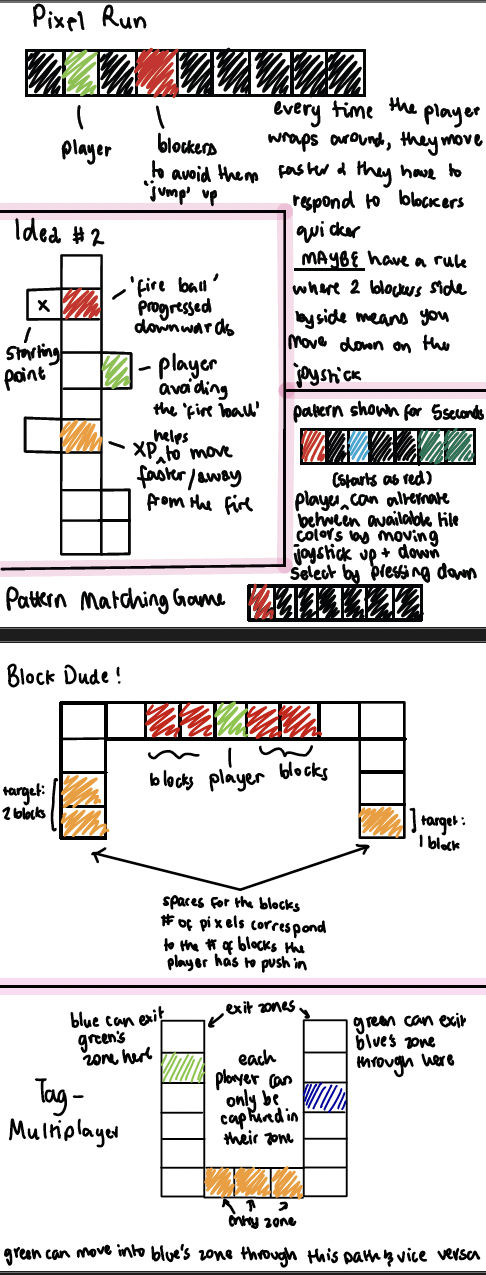 Pixel Run
player
blockers
to avoid them
'jump' up
every time the player
wraps around, they move
faster & they have to
respond to blockers
quicker
MAYBE have a rule
where 2 blockers side
by side means you
move down on the
joystick
Idea #2
x
starting
point
'fire ball'
progressed
downwards
player
avoiding
the 'fire ball'
XP helps to move
faster/away
from the fire
pattern shown for 5 seconds
(starts as red)
player can alternate
between available tile
colors by moving
joystick up + down
select by pressing down
Pattern Matching Game
Block Dude!
blocks
player
blocks
target:
2 blocks
target:
1 block
spaces for the blocks
# of pixels correspond
to the # of blocks the
player has to push in
blue can exit
green's
zone here
exit zones
green can exit
blue's zone
through here
each
player can
only be
captured in
their zone
Tag -
Multiplayer
entry zone
green can move into blue's zone through this path & vice versa